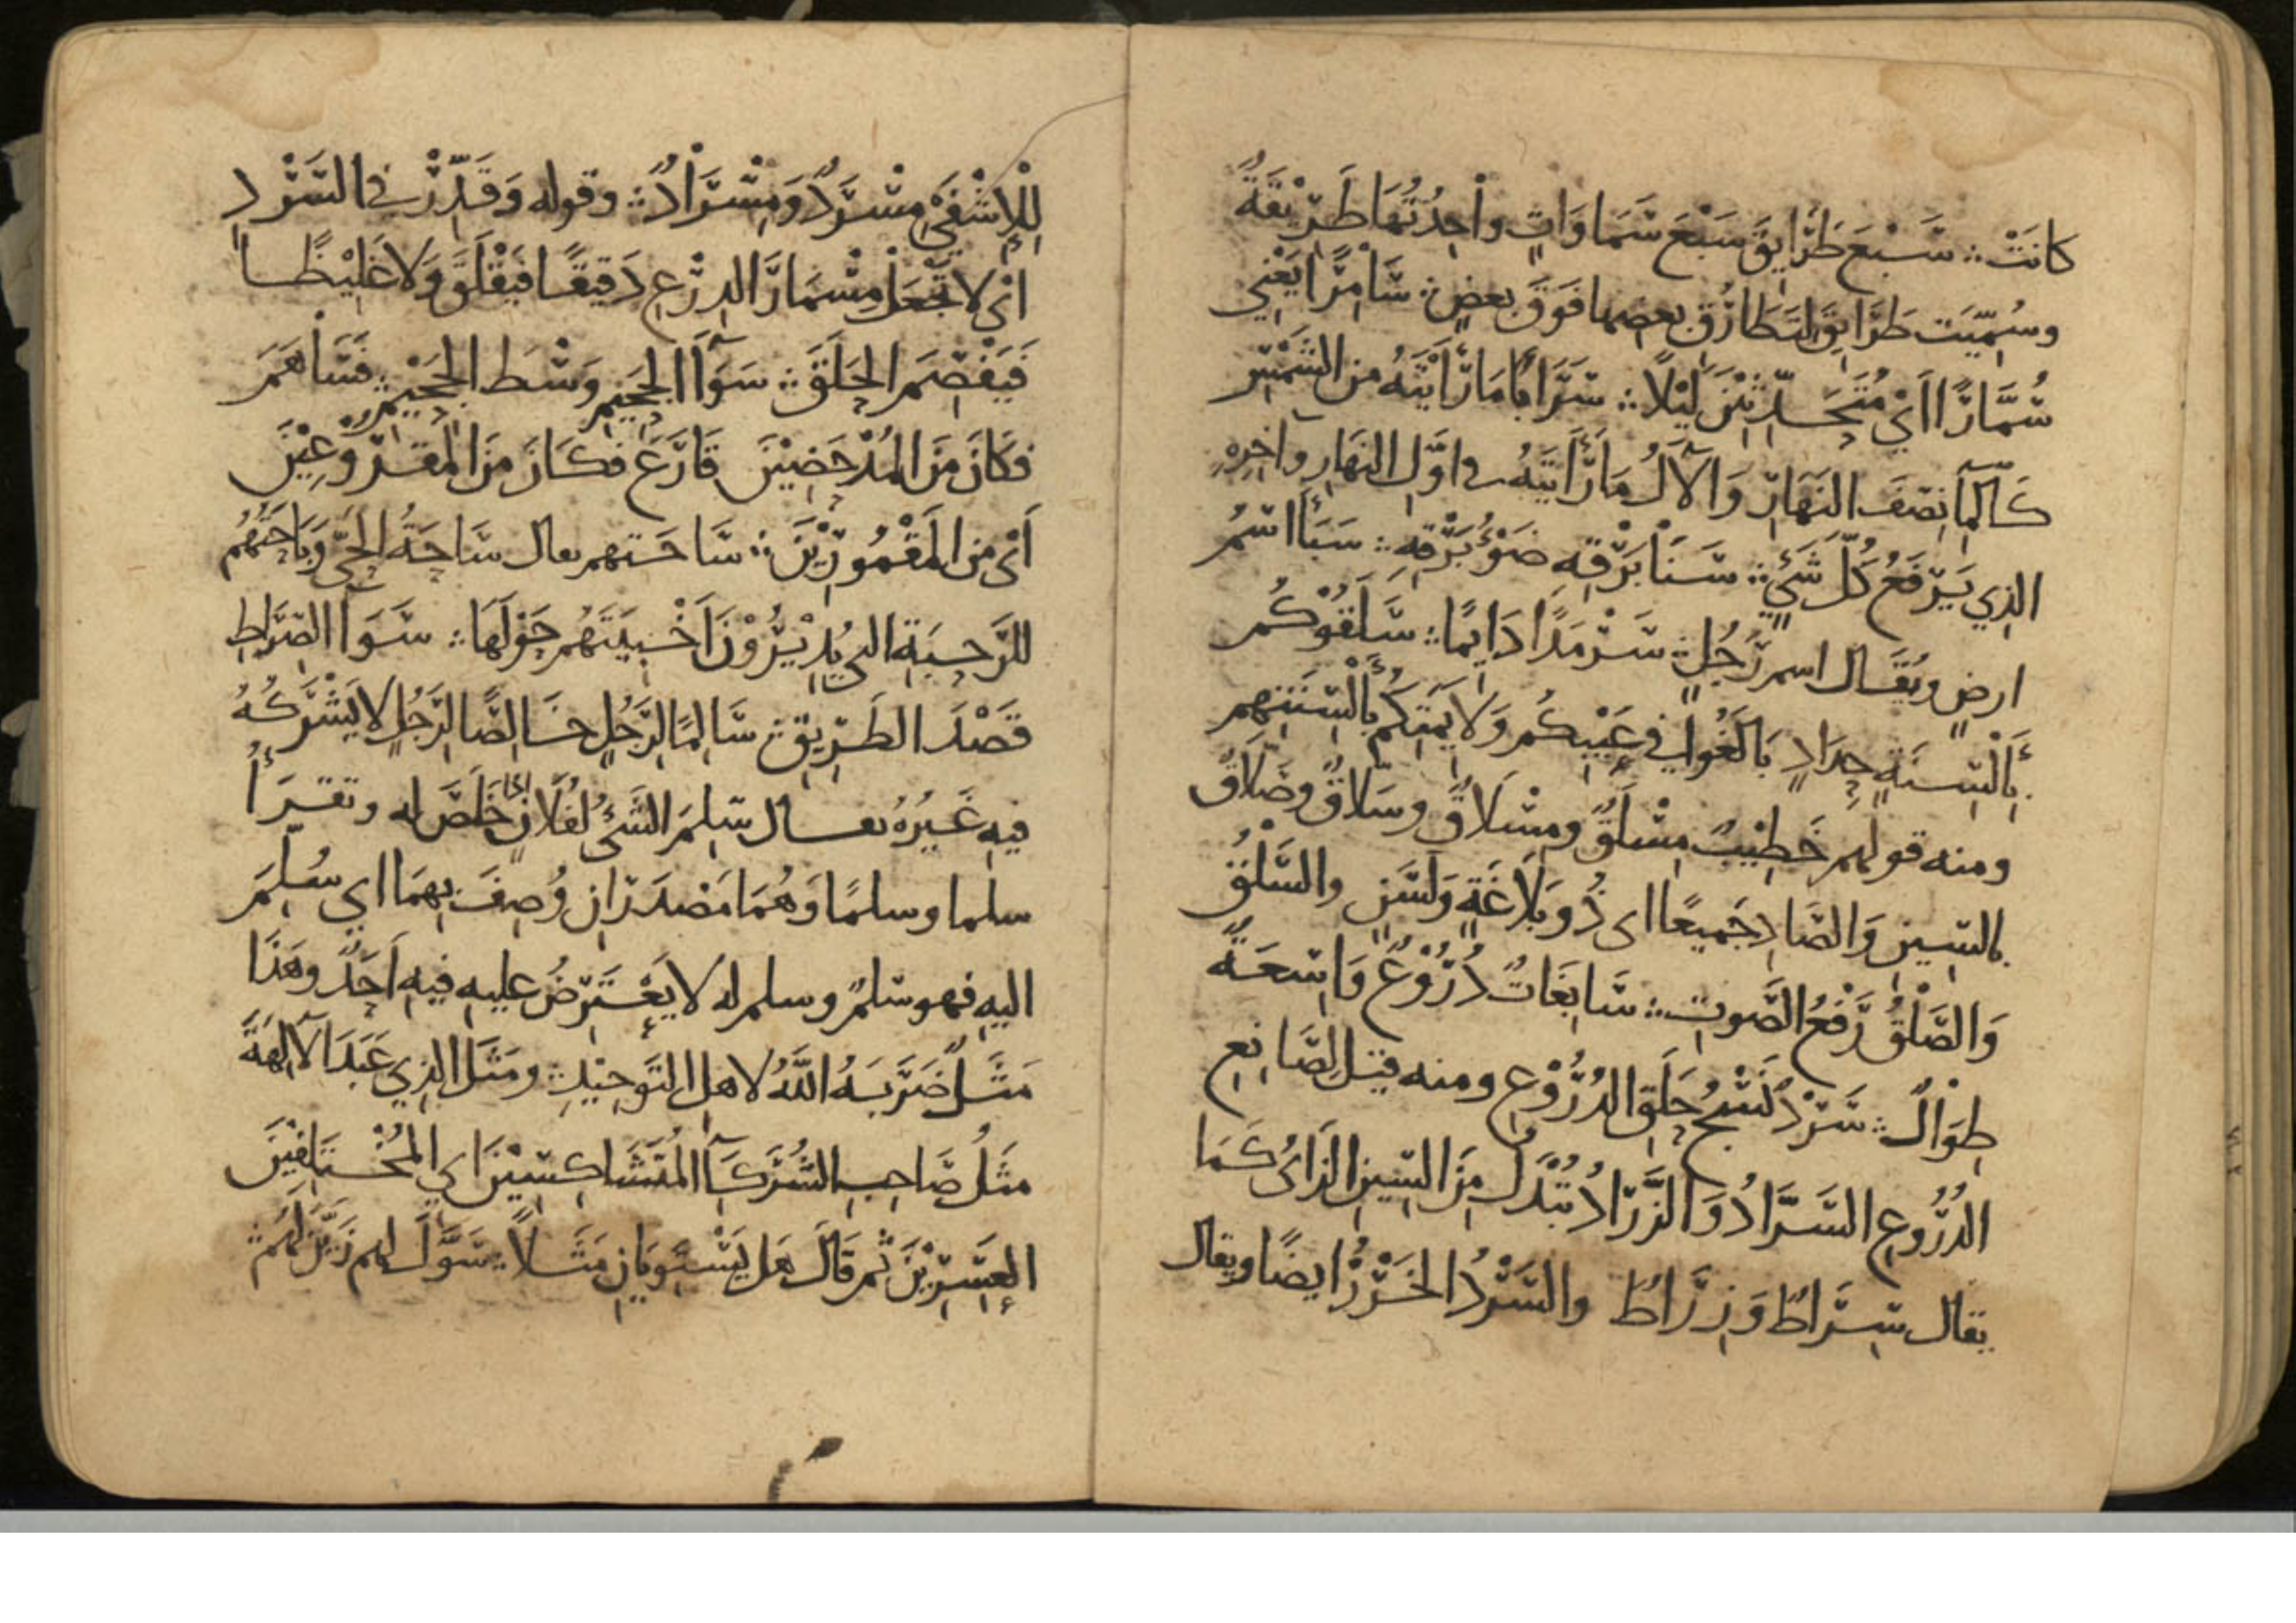 كانَتْ ؞ سَبْعَ طَرَايِقَ سَبْعَ سَمَاوَاتٍ واحِدَتُهَا طَرِيْقَةٌ
وسُمِّيَت طَرَايِقَ لتَطَارُقِ بعضِها فَوَقَ بعضٍ ؞ سَامِرًا يَعْنِي
سُمَّارًا اَيْ مُتَحَدِّثِيْنَ لَيْلًا ؞ سَرَابًا مَا رَأَيْتَهُ من الشَمْسِ
كَالمآ نِصْفَ النَهَارِ وَالآلُ مَا رَأَيْتَهُ في اوَّلِ النهَارِ وآخِرِهِ
الذِي يَرْفَعُ كُلَّ شَيْءٍ ؞ سَنَا بَرْقِهِ ضَوْءُ بَرْقِهِ ؞ سَبَأَ اسْمُ
ارضٍ ويُقَال اسم رَجُلٍ ؞ سَرْمَدًا دَايِمًا ؞ سَلَقُوْكُم
بِأَلْسِنَةٍ حِدَادٍ بَالَغُوا في عَيْبِكُم وَلَايِمَتِكُم بِأَلْسِنَتِهِم
ومنه قولهم خَطِيْبٌ مِسْلَقٌ ومِسْلَاقٌ وسَلَّاقٌ وصَلَّاقٌ
بالسِيْنِ وَالصَادِ جَمِيعًا اى ذُو بَلَاغَةٍ وَلَسَنٍ والسَّلْقُ
وَالصَّلْقُ رَفْعُ الصَّوتِ ؞ سَابِغَاتٌ دُرُوْعٌ وَاسِعَةٌ
طِوَالٌ ؞ سَرْدُ نَسْجُ حَلَقِ الدُرُوْعِ ومنه قيل لِصَانِعِ
الدُرُوعِ السَرَّادُ وَالزَرَّادُ تُبْدَلُ مِنَ السِينِ الزَاىُ كَمَا
يقال سِرَاطٌ وَزِرَاطٌ والسَرْدُ الخَرْزُ ايضًا ويقال
لِلْإِشْفَى مِسْرَدٌ وَمِسْرَادٌ ؞ وقوله وَقَدِّرْ في السَرْدِ
اىْ لا تَجْعَلْ مِسْمَارَ الدِرْعِ دَقِيقًا فَيَقْلَقَ وَلا غَلِيْظًا
فَيَفْصِمَ الحَلَقَ ؞ سَوَآءَ الجَحِيْمِ وَسْطَ الجَحِيْمِ ؞ فَسَاهَمَ
فكَانَ مِنَ المُدْحَضِيْنَ قَارَعَ فكَانَ مِنَ المَقْرُوْعِيْنَ
أَىْ مِنَ المَقْمُورِيْنَ ؞ سَاحَتهم يقال سَاحَةُ الحَيِّ وَبَاحَتُهُم
للرَحبَةِ التي يُدِيْرُوْنَ اَخْبِيَتَهُم حَوْلَهَا ؞ سَوَآءَ الصِرَاطِ
قَصْدَ الطَرِيقِ ؞ سَالِمًا لرَجُلٍ خَالِصًا لرَجُلٍ لا يَشْرَكُهُ
فِيهِ غَيْرُهُ يقال سَلِمَ الشَىْءُ لفُلَانٍ إذا خَلَصَ له وتقرَأُ
سلما وسلمًا وَهُمَا مَصْدَرَانِ وُصِفَ بِهمَا اى سُلِّمَ
اليهِ فهو سَلمٌ وسلم له لا يَعْتَرِضُ عليهِ فيهِ اَحَدٌ وهَذَا
مَثَلٌ ضَرَبَهُ اللَّهُ لاهلِ التَوحِيْدِ ؞ ومَثَلُ الذِي عَبَدَ الآلِهَةَ
مَثَلُ صَاحِبِ الشُرَكَآءِ المُتَشَاكِسِيْنَ اي المُخْتَلِفِيْنَ
العَسِرِيْنَ ثم قَالَ هَل يَسْتَوِيَانِ مَثَلًا ؞ سَوَّلَ لهم زَيَّنَ لهُم ؞